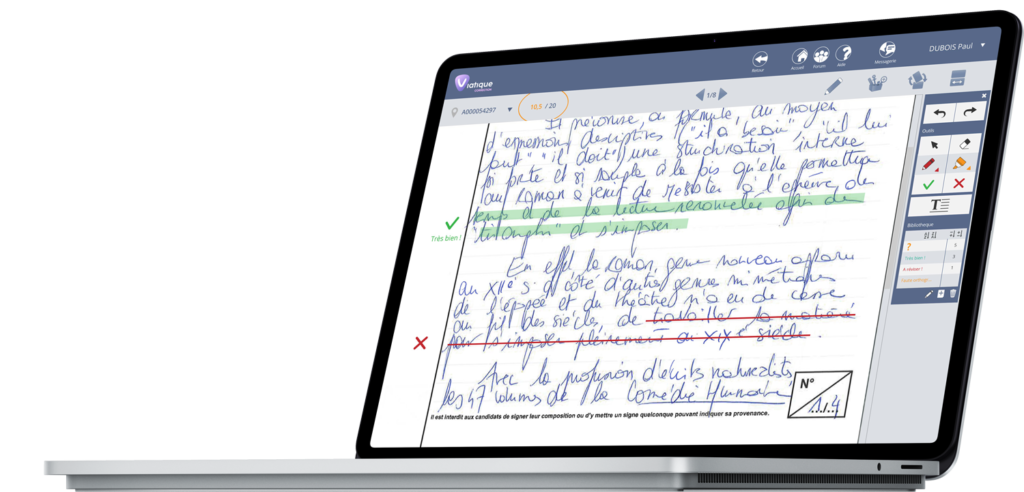 Viatique
Retour
Accueil
Forums
Aide
Messagerie
DUBOIS Paul
A000054297
10.5 / 20
1/8
Il préconise, ou formule, au moyen
d'expressions descriptives ("il a besoin" "il lui
faut" "il doit") une structuration interne
si forte et si souple à la fois qu'elle permettra
au Roman à venir de résister à l'épreuve du
temps et de la lecture renouvelée afin de
"triompher" et s'imposer.
Très bien !
En effet le Roman, genre nouveau apparu
au XIIè s. à côté d'autres genres mimétiques
de l'épopée et du théâtre n'a eu de cesse
au fil des siècles, de travailler la matière
pour s'imposer pleinement au XIXè siècle.
Avec la profusion d'écrits naturalistes
les 47 volumes de la Comédie Humaine
N°
1/4
Il est interdit aux candidats de signer leur composition ou d'y mettre un signe quelconque pouvant indiquer sa provenance.
Outils
T
Bibliothèque
?
Très bien !
3
A réviser !
1